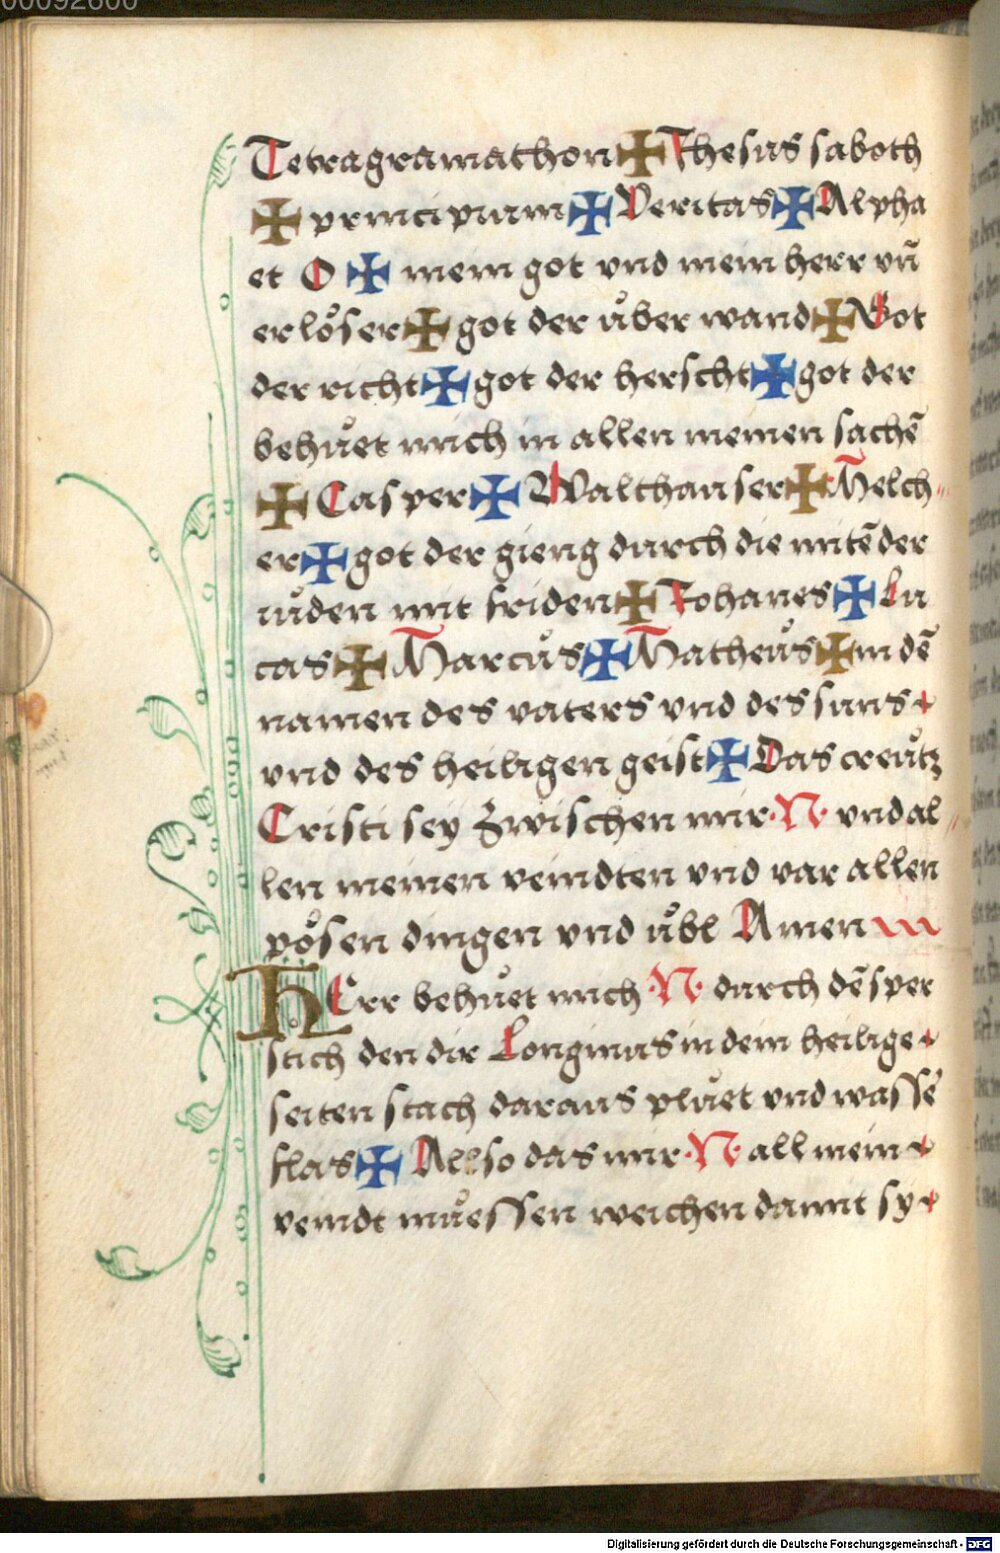 00092600
Tetragramathon ✠ Jhesus saboth
✠ principium ✠ Veritas ✠ Alpha
et O ✠ mein got vnd mein herr vñ
erlöser ✠ got der über wand ✠ Got
der richt ✠ got der herscht ✠ got der
behuet mich in allen meinen sachē
✠ Casper ✠ Walthanser ✠ Melch-
er ✠ got der gieng durch die mitē der
iuden mit friden ✠ Johanes ✠ Lu
cas ✠ Marcus ✠ Matheus ✠ in dē
namen des vaters vnd des suns +
vnd des heiligen geist ✠ Das creutz
Cristi sey zwischen mir · N · vnd al-
len meinen veindten vnd var allen
pösen dingen vnd übl Amen
HErr behuet mich · N · durch dē sper
stich den dir Longinus in dem heilige +
seiten stach daraus pluet vnd wasse
flas ✠ Allso das mir · N · all mein +
veindt muessen weichen damit sy +
Digitalisierung gefördert durch die Deutsche Forschungsgemeinschaft - DFG